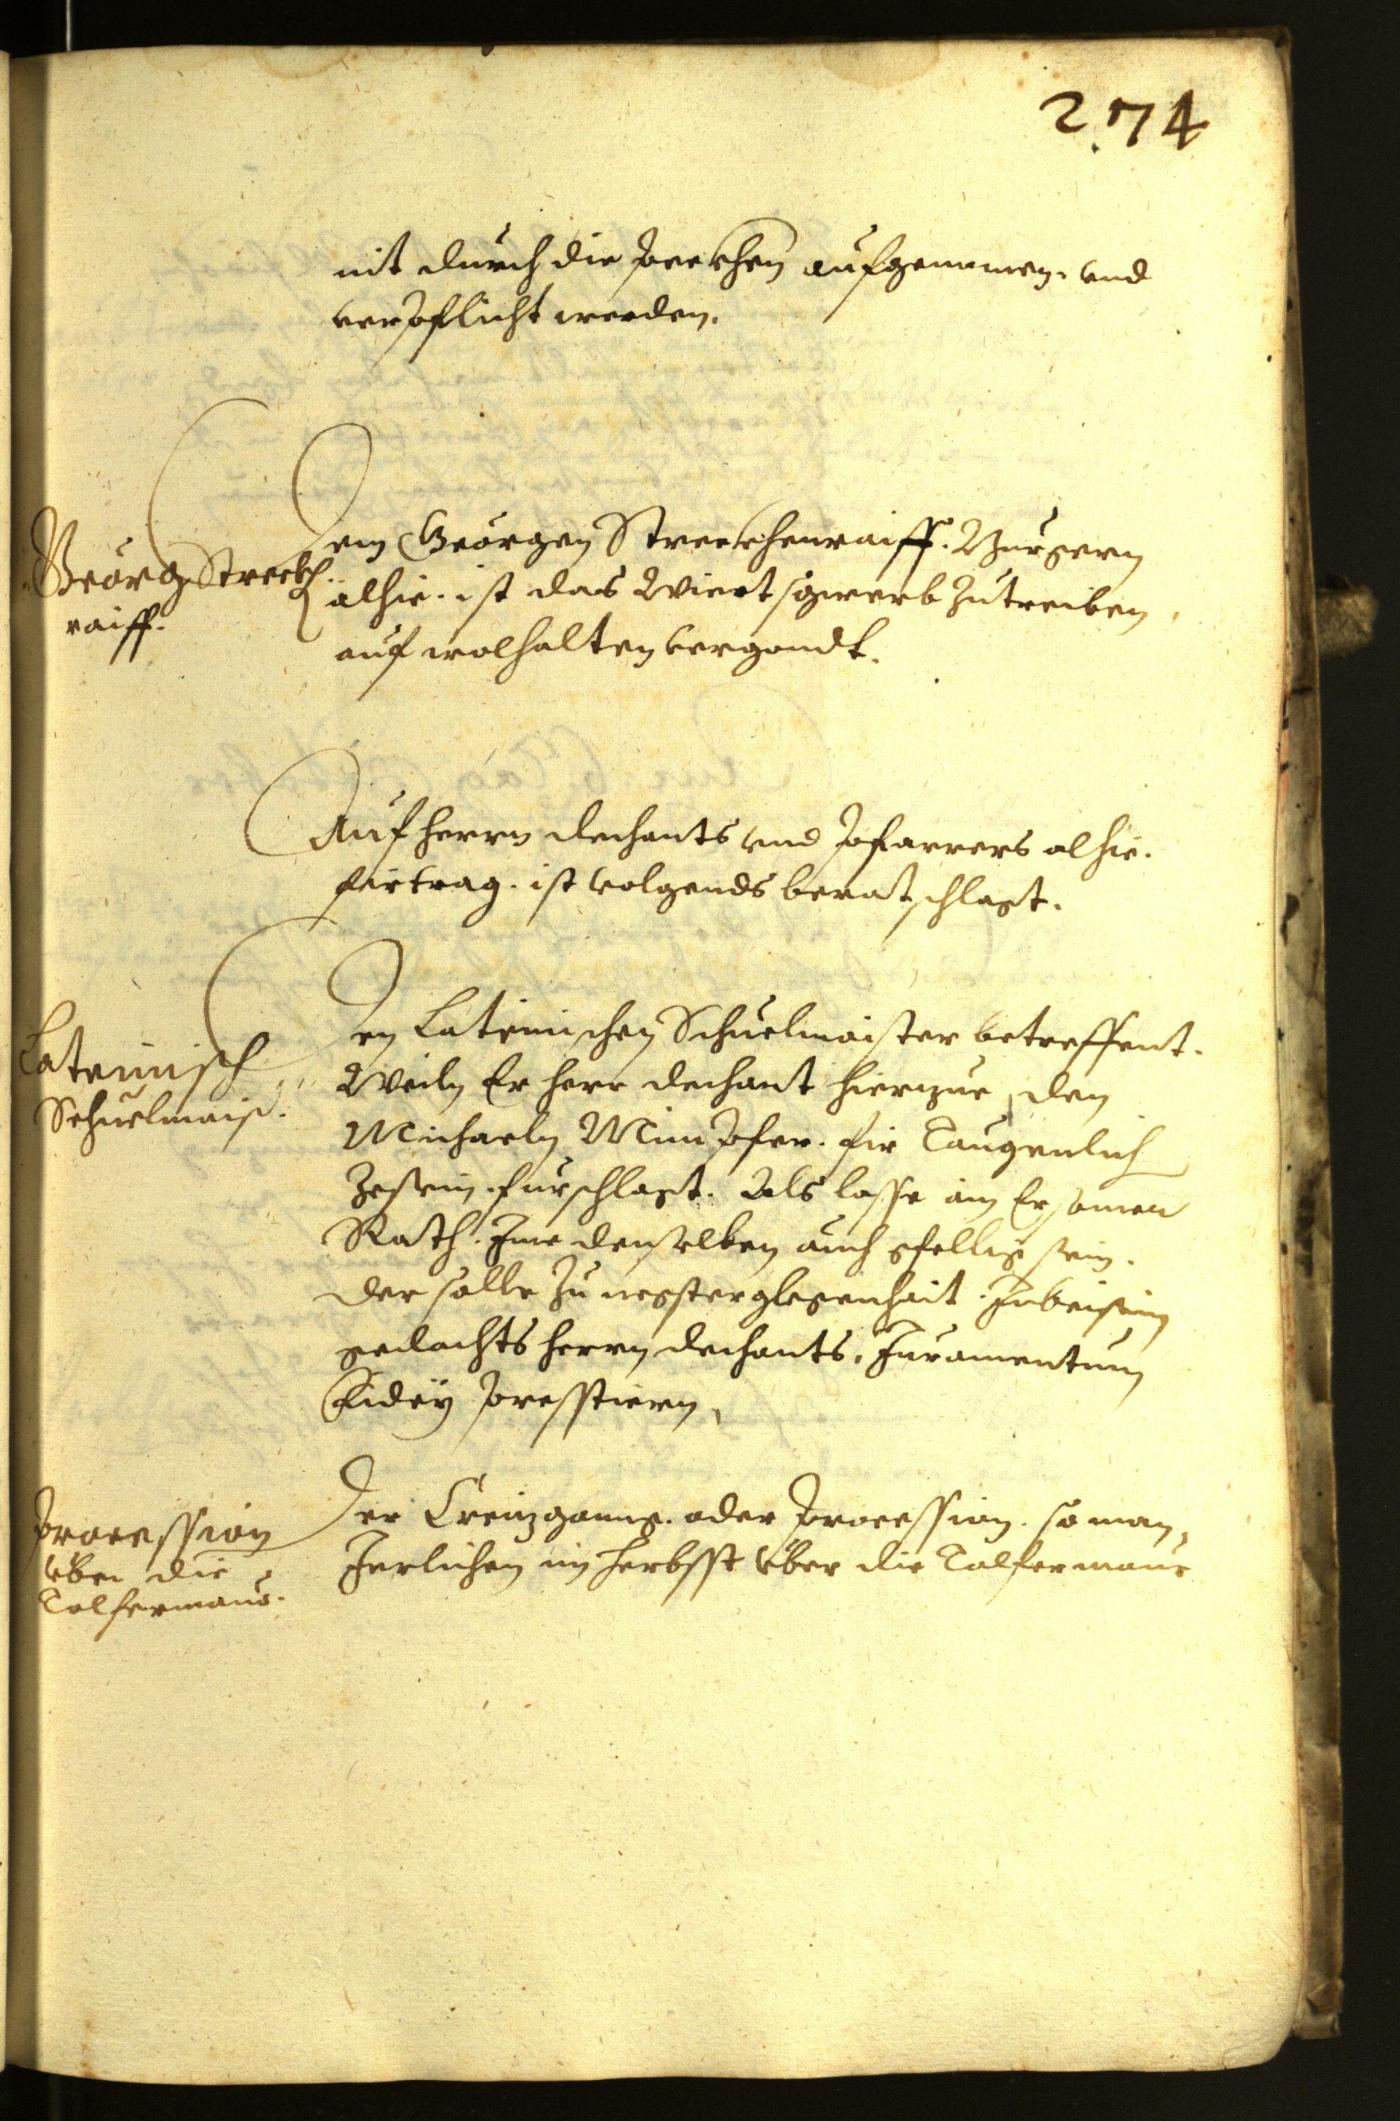 274
nit durch die Precchen aufgenomen. und
verpflicht werden.
Georg Streckh-
raiff.
Dem Geörgen Streckhenraiff. Burgern
alhie. ist das Wiert sgwerb Zutreiben
auf wolhalten vergondt.
Auf herrn dechants und Pfarrers alhie.
firtrag. ist volgends beratschlagt.
Lateinisch
Schuelmaist.
Den Lateinischen Schuelmaister betreffent.
Weiln Er herr dechant hierzue, den
Michaeln Mimpfer. fir Taugenlich
Zesein. furschlagt. Als lasse ain Ersamen
Rath. Ime denselben auch gfellig sein.
der solle zu negster glegenhait. In beisein
gedachts herrn dechants. Juramentum
Fidey presstiern,
Procession
uber die
Talfermaur.
Der Creizgang. oder Procession. so man,
Jerlichen im herbsst über die Talfermaur